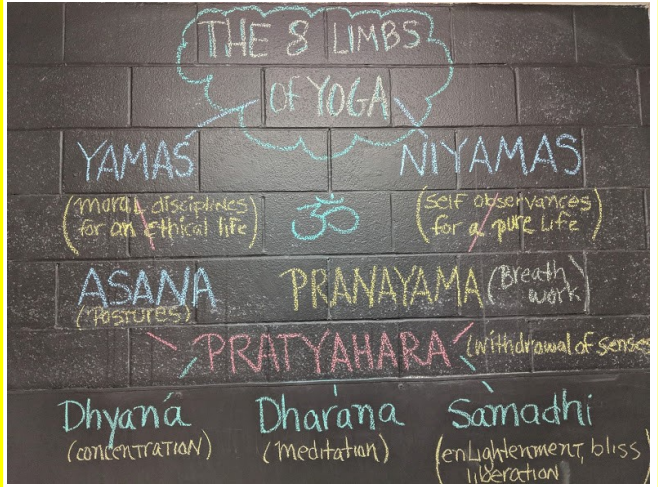 THE 8 LIMBS
OF YOGA
YAMAS
NIYAMAS
(moral disciplines
for an ethical life)
ॐ
(self observances
for a pure Life)
ASANA
(Pastures)
PRANAYAMA (Breath
work)
PRATYAHARA (withdrawal of senses
Dhyana
(concentration)
Dharana
(meditation)
Samadhi
(enlightenment, bliss
liberation